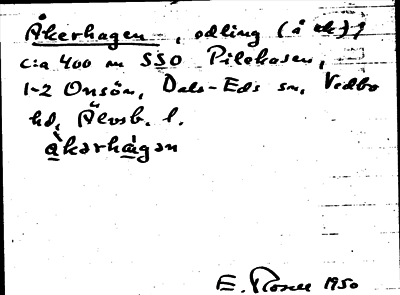 Åkerhagen, odling (å ek),
c:a 400 m SSO Pilekasen,
1-2 Onsön, Dals-Eds sn, Vedbo
hd, Älvsb. l.
åkərhàgən
E. Rosell 1950